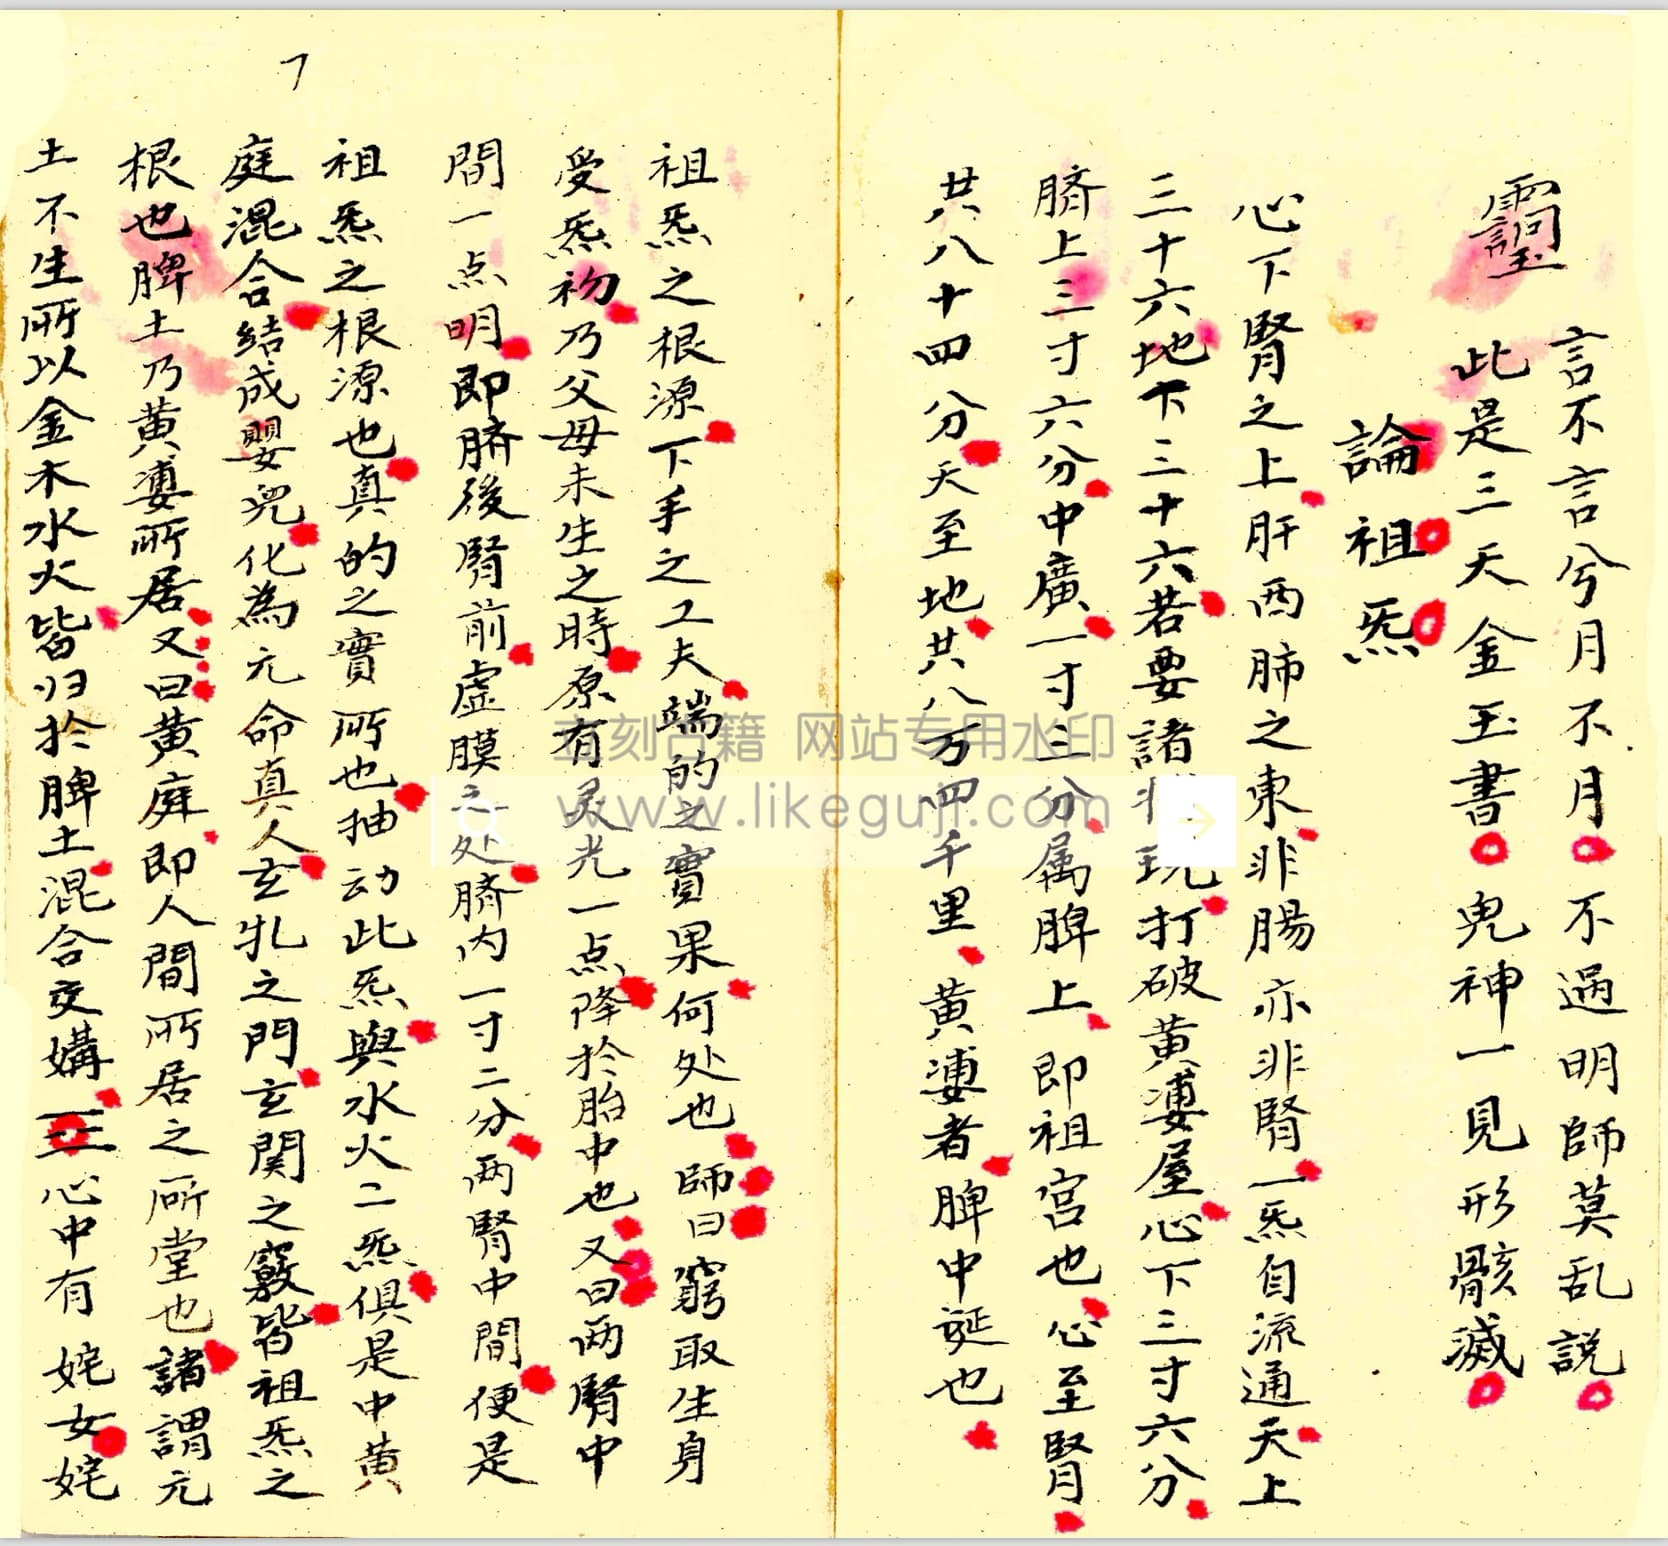 言不言兮月不月不過明師莫乱說
此是三天金玉書鬼神一見形骸滅
論祖炁
心下腎之上肝西肺之東非腸亦非腎一炁自流通天上
三十六地下三十六若要諸 現打破黄婆屋心下三寸六分
臍上三寸六分中廣一寸三分属脾上即祖宫也心至腎
共八十四分天至地共八万四千里黄婆者脾中涎也
祖炁之根源下手之工夫端的之實果何处也師曰窮取生身
受炁初乃父母未生之時原有灵光一点降於胎中也又曰两腎中
間一点明即臍後腎前虚膜之处臍内一寸二分两腎中間便是
祖炁之根源也真的之實所也抽动此炁與水火二炁俱是中黄
庭混合結成嬰兒化為元命真人玄牝之門玄関之竅皆祖炁之
根也脾土乃黄婆所居又曰黄庭即人間所居之所堂也諸謂元
土不生所以金木水火皆归於脾土混合交媾三心中有姹女姹
7
立刻古籍 网站专用水印
www.likeguji.com